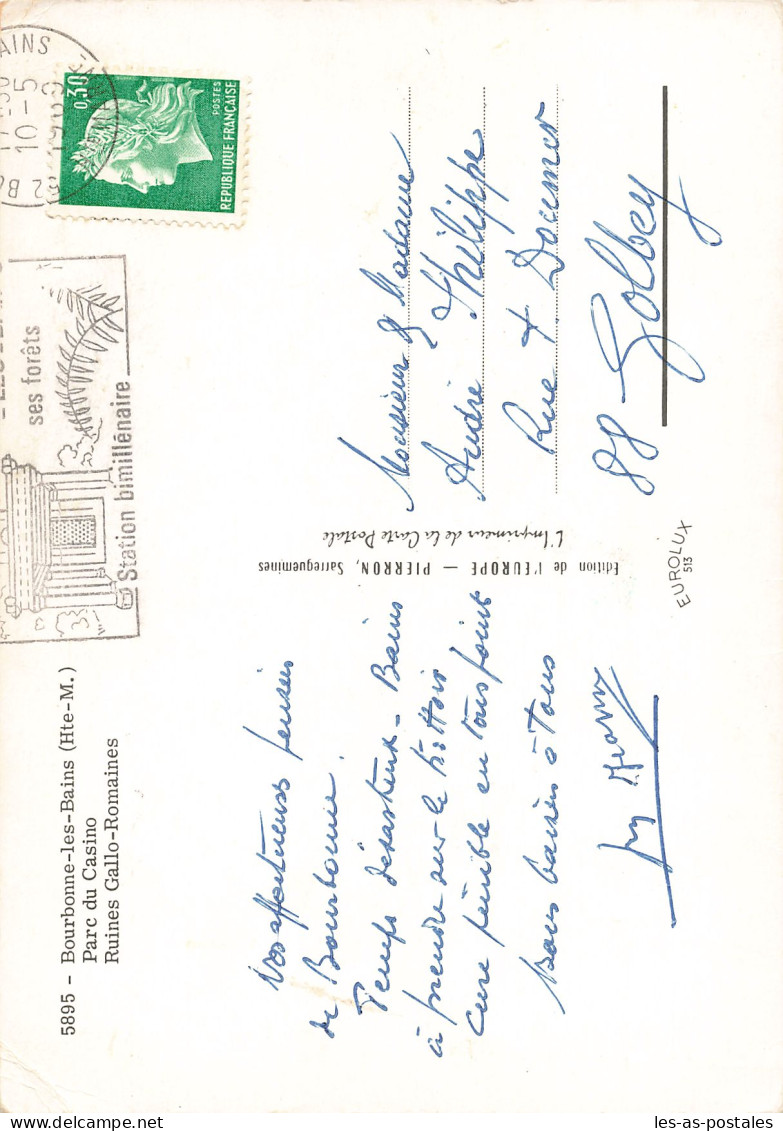 5895 - Bourbonne-les-Bains (Hte-M.)
Parc du Casino
Ruines Gallo-Romaines
affectueuses pensées
de Bourbonne.
Temps désastreux - Bains
à prendre sur le trottoir
Cure pénible en tous point
Bons baisers à Tous
ses forêts
Station bimillénaire
AINS
10-5
1969
0,30
POSTES
REPUBLIQUE FRANÇAISE
Edition de l'EUROPE — PIERRON, Sarreguemines
L'Imprimeur de la Carte Postale
Monsieur & Madame
André Philippe
Rue + Doumer
88 Golbey
EUROLUX
513
les-as-postales